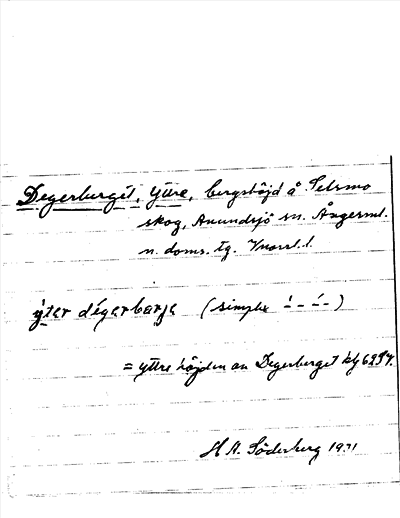 Degerberget, Yttre, bergshöjd å Selsmo
skog, Anundsjö sn. Ångerml.
n. doms. tg. Vnorrl. l.
ýter dégerbarje (simplex
= yttre höjden av Degerberget
H A. Söderberg 1931